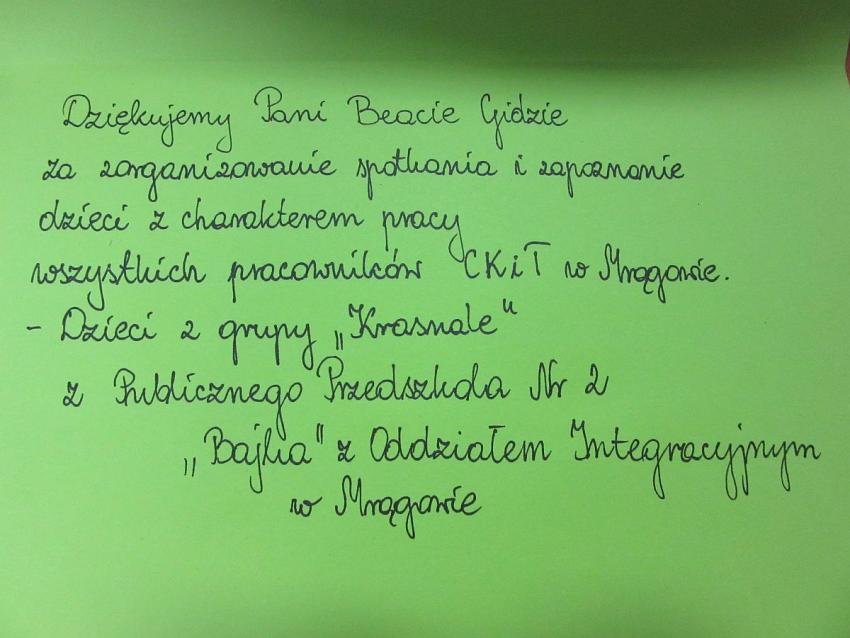 Dziękujemy Pani Beacie Gidzie
za zorganizowanie spotkania i zapoznanie
dzieci z charakterem pracy
wszystkich pracowników CKiT w Mrągowie.
- Dzieci z grupy „Krasnale"
z Publicznego Przedszkola Nr 2
„Bajka" z Oddziałem Integracyjnym
w Mrągowie